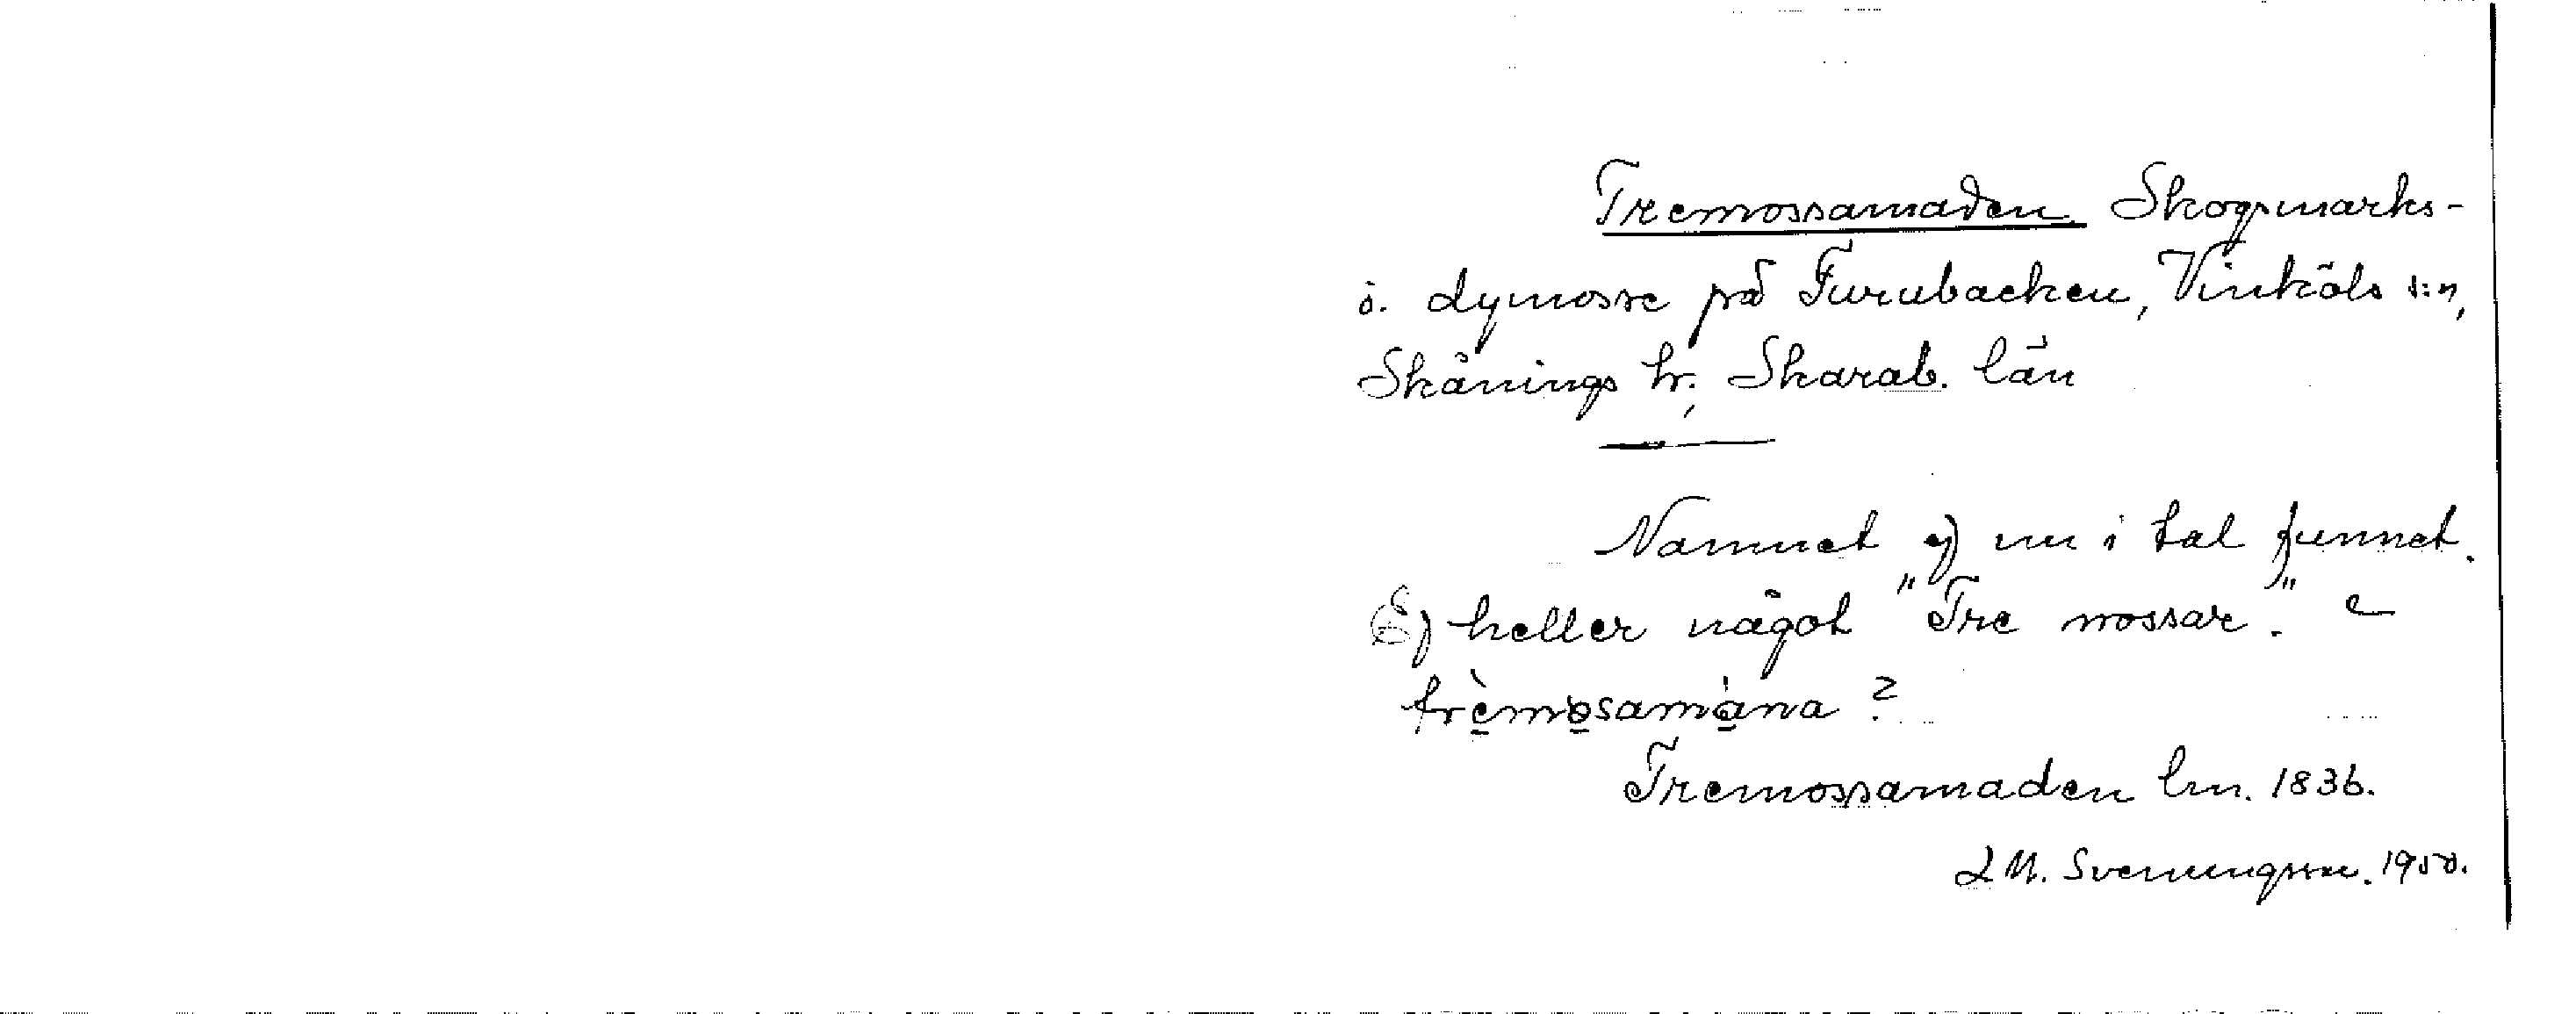 Tremossamaden. Skogsmarks-
o. dymosse på Furubacken, Vinköls s:n,
Skånings hr, Skarab. län
Namnet ej nu i tal funnet.
Ej heller något "Tre mossar".
trèmosamàna ?
Tremossamaden lm. 1836.
L M. Svenungsson. 1950.